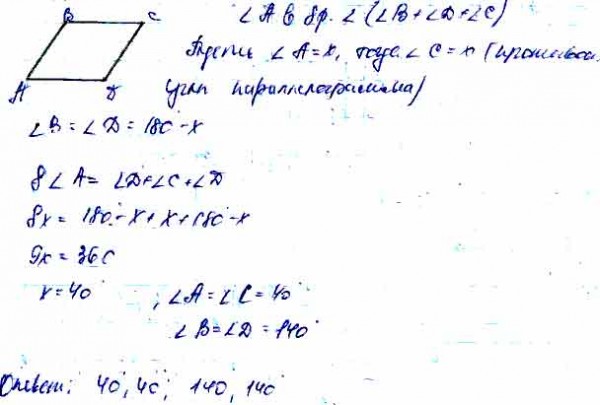 B C
A D
∠A в 8р. < (∠B+∠D+∠C)
Пусть ∠A=x, тогда ∠C=x (противоп.
углы параллелограмма)
∠B=∠D=180-x
8∠A= ∠D+∠C+∠D
8x= 180-x+x+180-x
9x=360
x=40° ; ∠A=∠C=40°
∠B=∠D=140°
Ответ: 40, 40, 140, 140